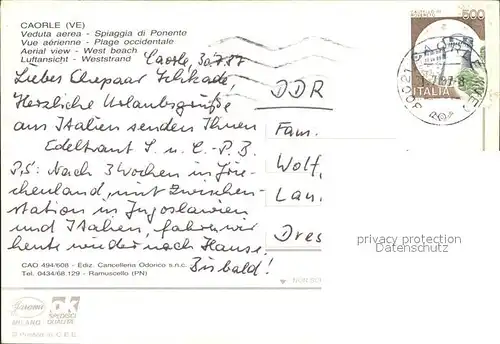 CAORLE (VE)
Veduta aerea - Spiaggia di Ponente
Vue aérienne - Plage occidentale
Aerial view - West beach
Luftansicht - Weststrand
Caorle, 30.7.87
Liebes Ehepaar
Herzliche Urlaubsgrüße
aus Italien senden Ihnen
Edeltraut S. u. C.-P. B.
P.S: Nach 3 Wochen in Grie-
chenland, mit Zwischen-
station in Jugoslawien
und Italien, fahren wir
heute wieder nach Hause.
Bis bald!
DDR
Fam.
Wolf,
Lan.
Dres
500
ITALIA
privacy protection
Datenschutz
CAO 494/608 - Ediz. Cancelleria Odorico s.n.c.
Tel. 0434/68.129 - Ramuscello (PN)
MILANO